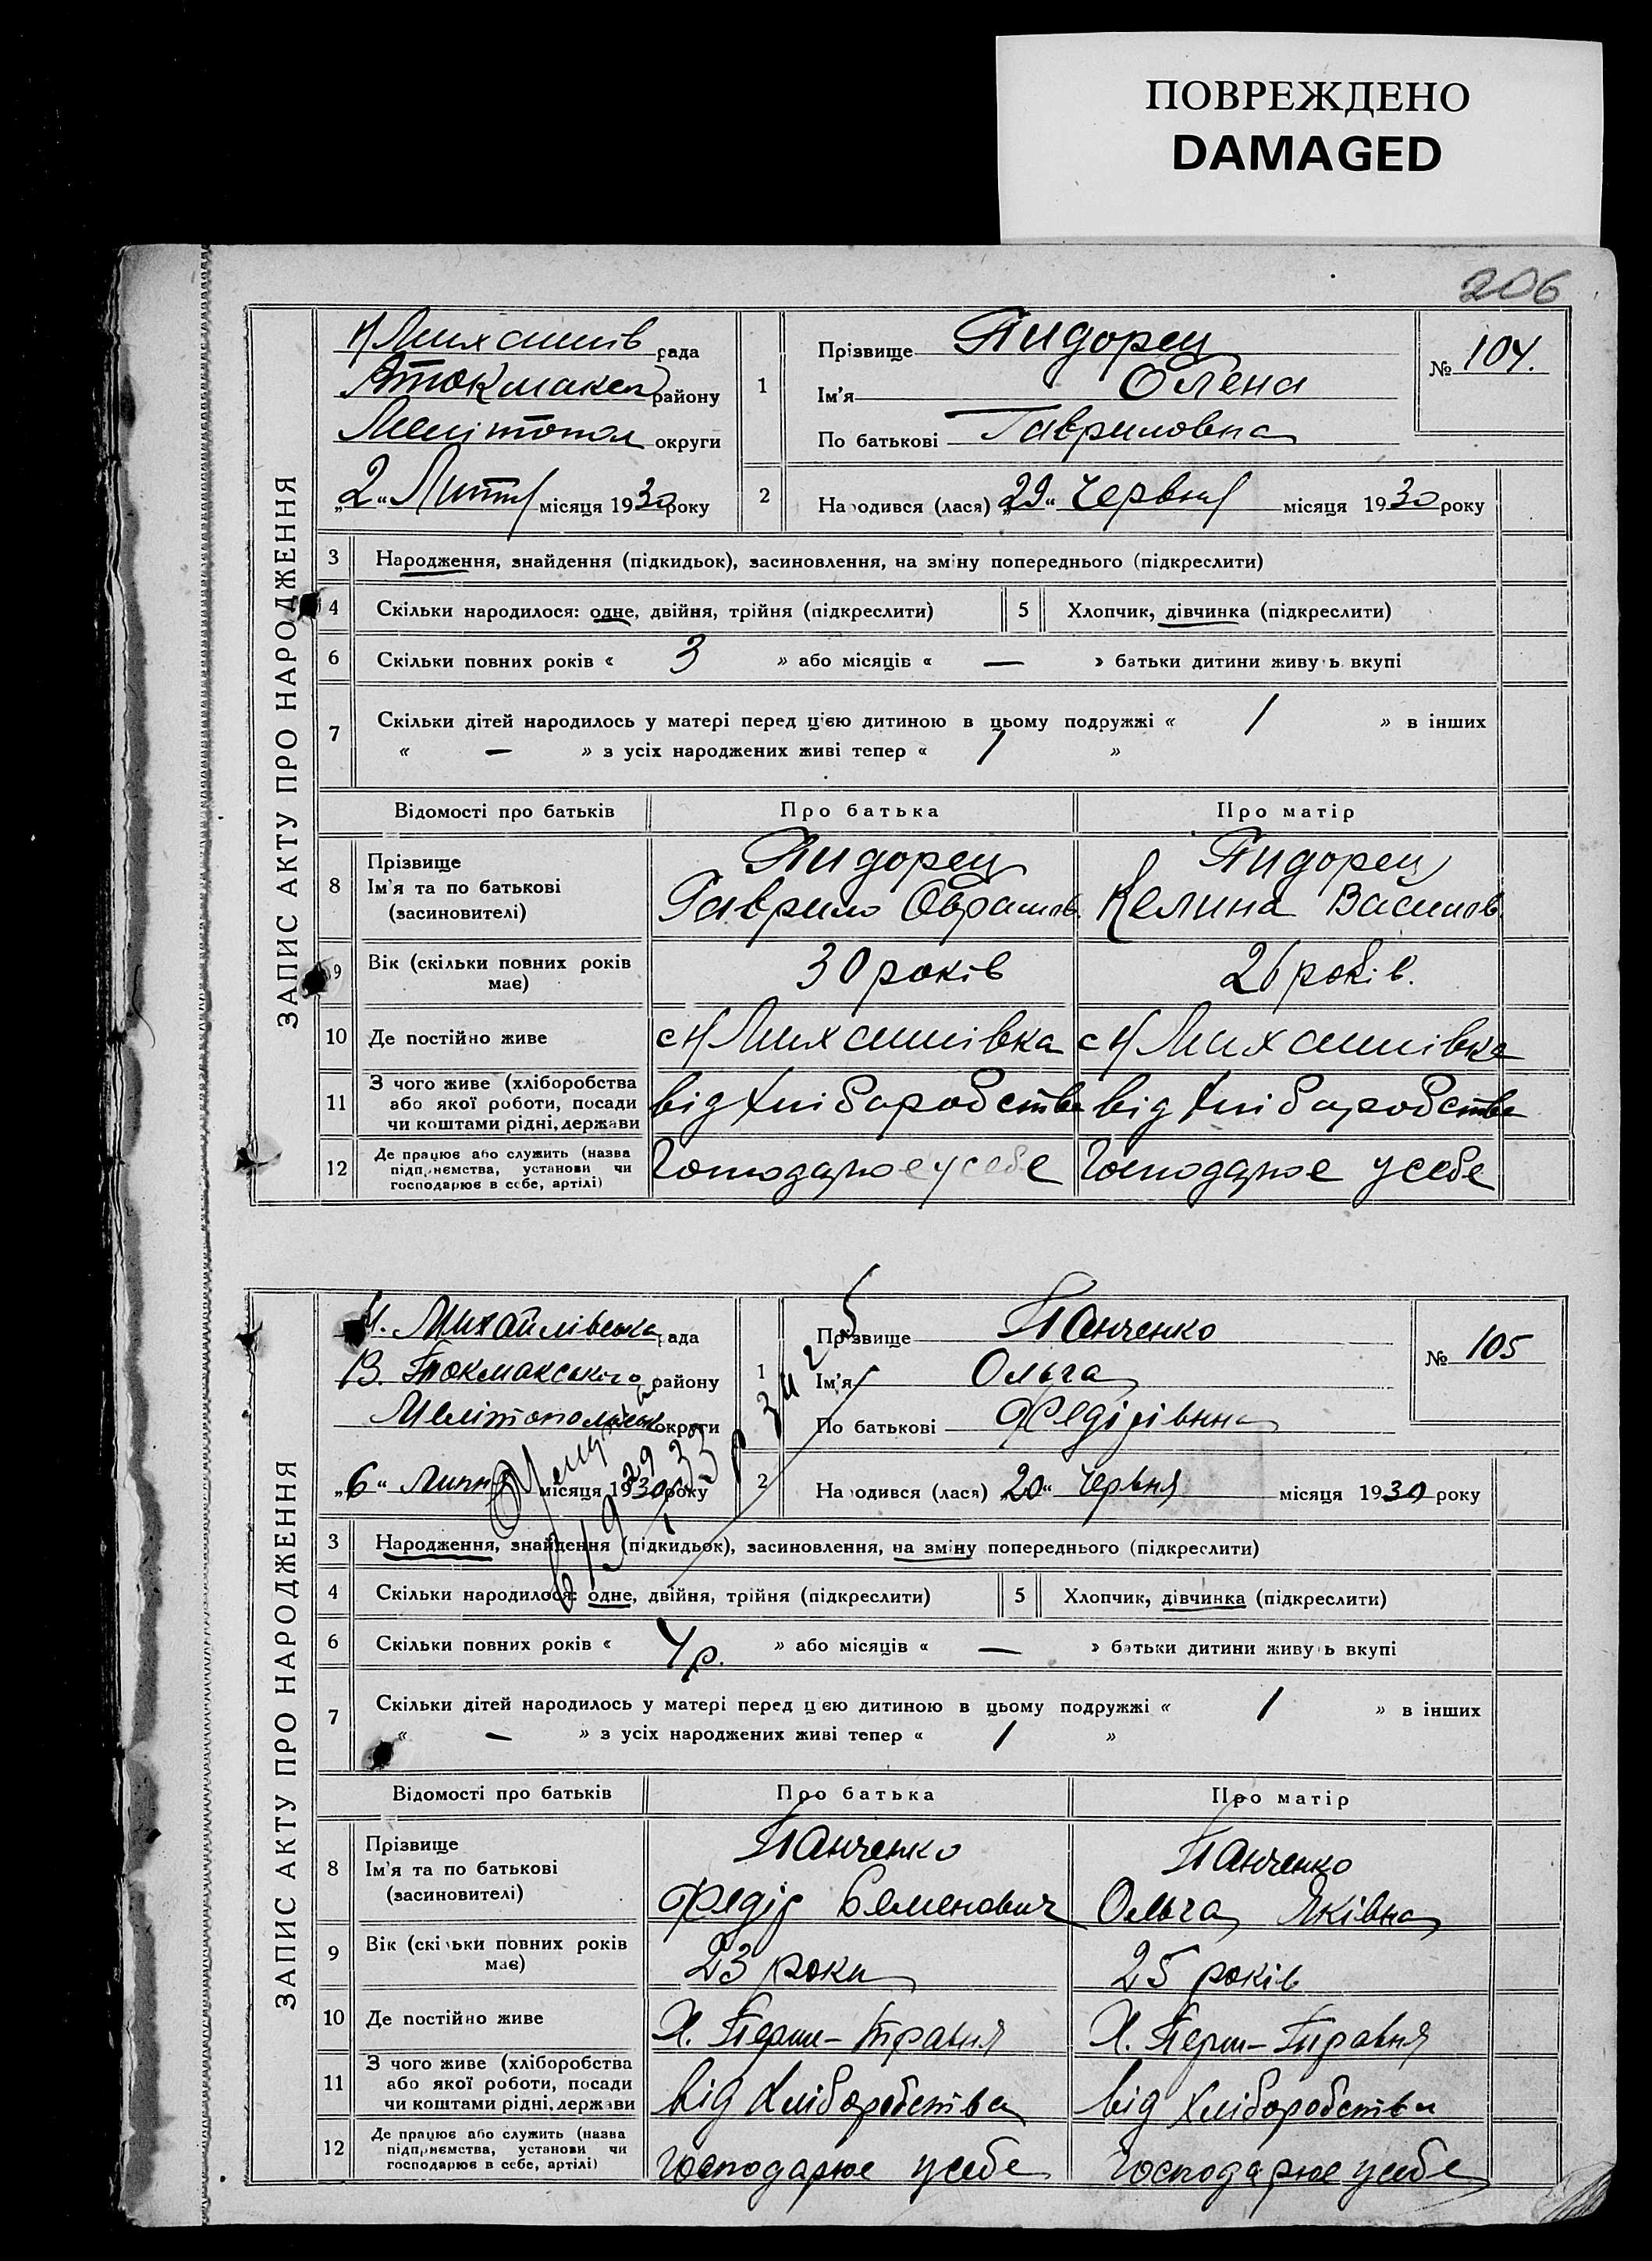 ПОВРЕЖДЕНО
DAMAGED
206
ЗАПИС АКТУ ПРО НАРОДЖЕННЯ
рада
району
Меліtопол округи
„2“ Липня місяця 1930 року
1
Прізвище Пидорец
Ім'я Олена
По батькові Гавриловна
№ 104.
2
Народився (лася) „29“ Червня місяця 1930 року
3 Народження, знайдення (підкидьок), засиновлення, на зміну попереднього (підкреслити)
4 Скільки народилося: одне, двійня, трійня (підкреслити)
5 Хлопчик, дівчинка (підкреслити)
6 Скільки повних років « 3 » або місяців « — » батьки дитини живуть вкупі
7 Скільки дітей народилось у матері перед цією дитиною в цьому подружжі « 1 » в інших
« — » з усіх народжених живі тепер « 1 »
Відомості про батьків Про батька Про матір
8 Прізвище Пидорец Пидорец
Ім'я та по батькові Гаврило Келина Васильов.
(засновителі)
9 Вік (скільки повних років має) 30 років 26 років.
10 Де постійно живе
11 З чого живе (хліборобства
або якої роботи, посади
чи коштами рідні, держави
від хліборобства від хліборобства
12 Де працює або служить (назва
підприємства, установи чи
господарює в себе, артілі)
Господарює у себе Господарює у себе
ЗАПИС АКТУ ПРО НАРОДЖЕННЯ
Михайлівська рада
В. Токмакського району
Мелітопольськ округи
„6“ Липня місяця 1930 року
1
Прізвище Панченко
Ім'я Ольга
По батькові Федірівна
№ 105
2
Народився (лася) „20“ Червня місяця 1930 року
3 Народження, знайдення (підкидьок), засиновлення, на зміну попереднього (підкреслити)
4 Скільки народилося: одне, двійня, трійня (підкреслити)
5 Хлопчик, дівчинка (підкреслити)
6 Скільки повних років « 4 р. » або місяців « — » батьки дитини живуть вкупі
7 Скільки дітей народилось у матері перед цією дитиною в цьому подружжі « 1 » в інших
« — » з усіх народжених живі тепер « 1 »
Відомості про батьків Про батька Про матір
8 Прізвище Панченко Панченко
Ім'я та по батькові Федір Семенович Ольга Яківна
(засиновителі)
9 Вік (скільки повних років має) 23 роки 25 років
10 Де постійно живе Х. Перш-Травня Х. Перш-Травня
11 З чого живе (хліборобства
або якої роботи, посади
чи коштами рідні, держави
від хліборобства від хліборобства
12 Де працює або служить (назва
підприємства, установи чи
господарює в себе, артілі)
Господарює у себе Господарює у себе